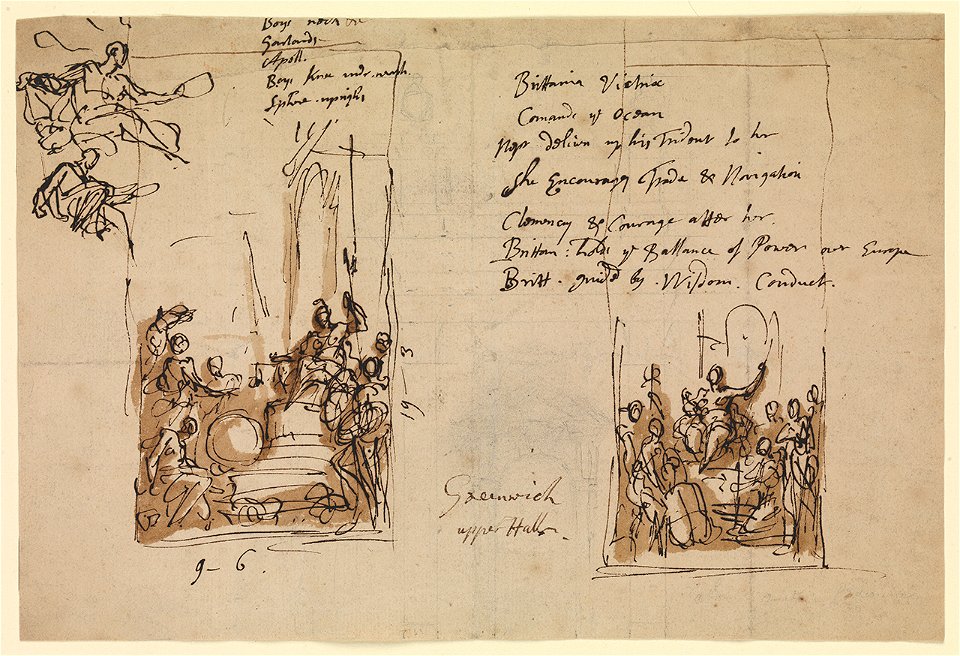 Boys
Garlands
Apoll.
Boys Knee undr neath.
Sphre upright
Brittania Victrix
Comands ye Ocean
Nept delivrs up his Trident to her
She Encourages Trade & Navigation
Clemency & Courage after her.
Brittan: holds ye Ballance of Power over Europe
Britt. guided by Wisdom. Conduct.
19–3
9–6.
Greenwich
upper Hall.